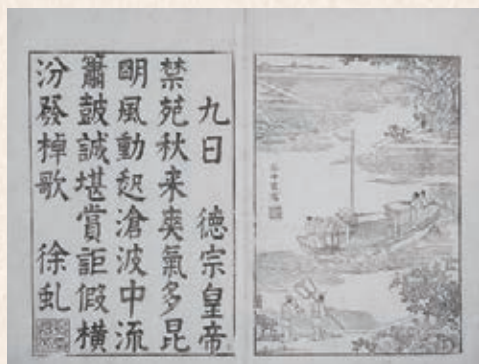 九日　德宗皇帝
禁苑秋来爽氣多昆
明風動起滄波中流
簫鼓誠堪賞詎假横
汾發棹歌　徐虬